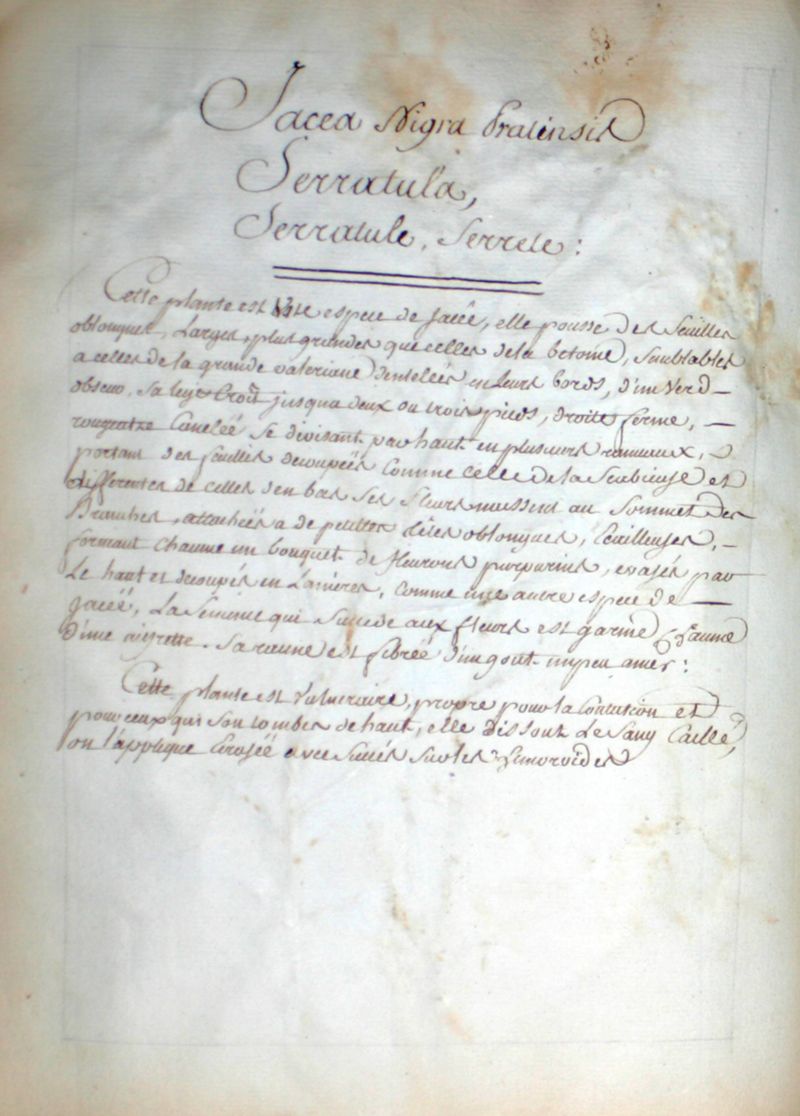 Jacea Nigra Pratensis
Serratula,
Serratule, Serrete:
Cette plante est Une espece de Jacée, elle pousse des feuilles
oblongues, Larges, plus grandes que celles de la betoine, Semblables
a celles de la grande valeriane Dentelées en Leurs bords, d'un Verd
obscur, Sa tige Croît jusqua deux ou trois pieds, droite ferme,
rougeatre Canelée Se divisant par haut en plusieurs rameaux,
portant des feuilles decoupées Comme Celle de la Scabieuse et
differentes de celles d'en bas Ses fleurs naissent au Sommet des
Branches, attachées a de petittes têtes oblongues, Ecailleuses,
formant chacune un bouquet de fleurons purpurins, evasés par
Le haut et decoupés en Lanieres, Comme une autre espece de
Jacéé, La Semence qui Succede aux fleurs est garnie
d'une aigrette. Sa racine est fibréé d'un gout un peu amer:
Cette plante est Vulneraire, propre pour la Contusion et
pour ceux qui Son tombés de haut, elle dissout Le Sang Caillé,
on l'applique Ecrasée avec Succés Sur les Emoroïdes